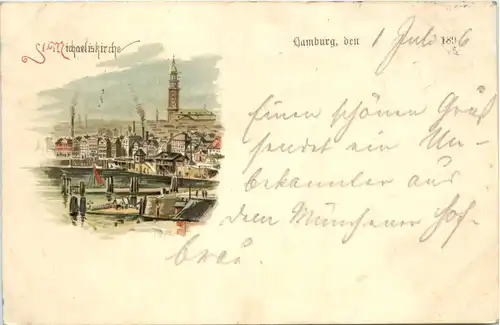 St. Michaeliskirche
Hamburg, den 1 Juli 1896
Einen schönen Gruß
sendet ein Un-
bekannter aus
dem Münchener Hof-
bräu.